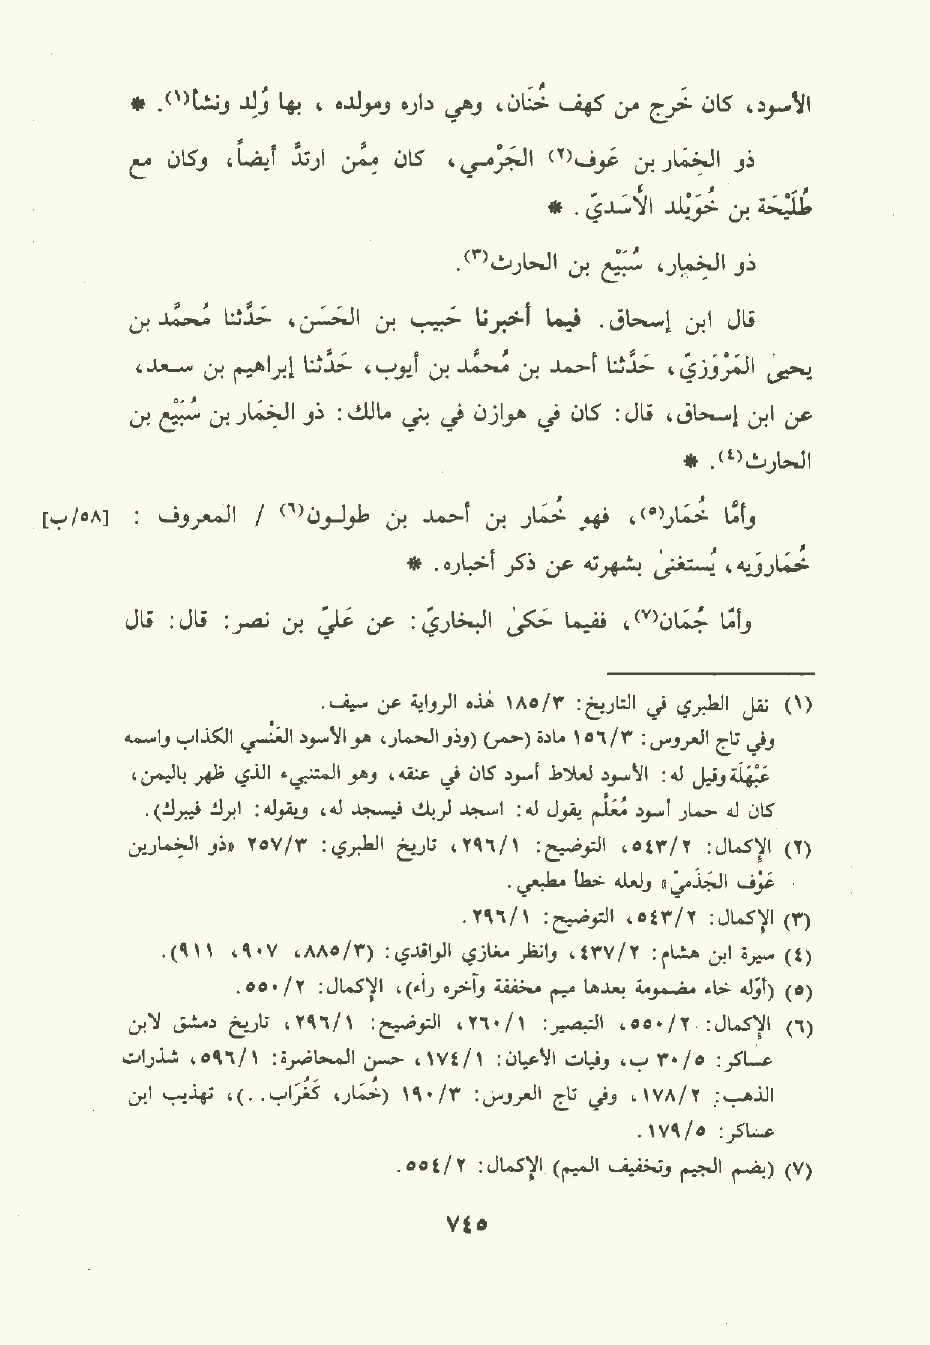 الأسود، كان خَرج من كهف خُنَان، وهي داره ومولده، بها وُلِد ونشأ(١). *
ذو الخِمَار بن عَوف(٢) الجَرْمـي، كان مِمَّن ارتدَّ أيضاً، وكان مع
طُلَيْحَة بن خُوَيْلد الأَسَديّ. *
ذو الخِمار، سُبَيْع بن الحارث(٣).
قال ابن إسحاق. فيما أخبرنا حَبيب بن الحَسَن، حَدَّثنا مُحمَّد بن
يحيىٰ المَرْوَزيّ، حَدَّثنا أحمد بن محمَّد بن أيوب، حَدَّثنا إبراهيم بن سـعد،
عن ابن إسحاق، قال: كان في هوازن في بني مالك: ذو الخِمَار بن سُبَيْع بن
الحارث(٤). *
وأمَّا خُمَار(٥)، فهو خُمَار بن أحمد بن طولون(٦) / المعروف : [٥٨/ب]
خُمَارَوَيه، يُستغنىٰ بشهرته عن ذكر أخباره. *
وأمّا جُمَان(٧)، ففيما حَكىٰ البخاريّ: عن عَليّ بن نصر: قال: قال
(١) نقل الطبري في التاريخ: ١٨٥/٣ هٰذه الرواية عن سيف.
وفي تاج العروس: ١٥٦/٣ مادة (حمر) (وذو الحمار، هو الأسود العَنْسي الكذاب واسمه
عَبْهَلَة وقيل له: الأسود لعلاط أسود كان في عنقه، وهو المتنبيء الذي ظهر باليمن،
كان له حمار أسود مُعَلَّم يقول له: اسجد لربك فيسجد له، ويقوله: ابرك فيبرك).
(٢) الإكمال: ٥٤٣/٢، التوضيح: ٢٩٦/١، تاريخ الطبري: ٢٥٧/٣ «ذو الخِمار بن
عَوْف الجَذميّ» ولعله خطأ مطبعي.
(٣) الإكمال: ٥٤٣/٢، التوضيح: ٢٩٦/١.
(٤) سيرة ابن هشام: ٤٣٧/٢، وانظر مغازي الواقدي: (٨٨٥/٣، ٩٠٧، ٩١١).
(٥) (أوّله خاء مضمومة بعدها ميم مخففة وآخره راء)، الإكمال: ٥٥٠/٢.
(٦) الإكمال: ٥٥٠/٢، التبصير: ٢٦٠/١، التوضيح: ٢٩٦/١، تاريخ دمشق لابن
عساكر: ٣٠/٥ ب، وفيات الأعيان: ١٧٤/١، حسن المحاضرة: ٥٩٦/١، شذرات
الذهب: ١٧٨/٢، وفي تاج العروس: ١٩٠/٣ (خُمَار، كَغُرَاب..)، تهذيب ابن
عساكر: ١٧٩/٥.
(٧) (بضم الجيم وتخفيف الميم) الإكمال: ٥٥٤/٢.
٧٤٥